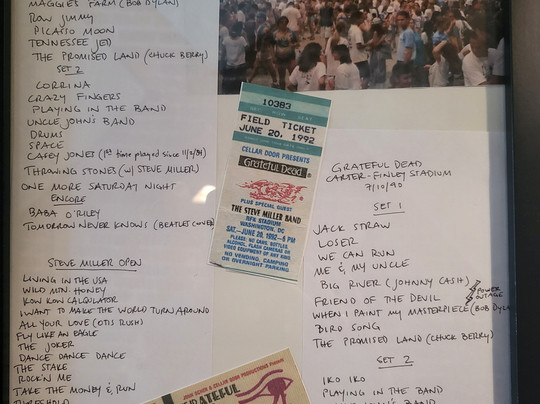 MAGGIE'S FARM (BOB DYLAN)
ROW JIMMY
PICASSO MOON
TENNESSEE JED
THE PROMISED LAND (CHUCK BERRY)
SET 2
CORRINA
CRAZY FINGERS
PLAYING IN THE BAND
UNCLE JOHN'S BAND
DRUMS
SPACE
CASEY JONES (1st time played since
THROWING STONES (w/ STEVE MILLER)
ONE MORE SATURDAY NIGHT
ENCORE
BABA O'RILEY
TOMORROW NEVER KNOWS (BEATLES COVER)
STEVE MILLER OPEN
LIVING IN THE USA
WILD MTN. HONEY
KOW KOW CALQULATOR
I WANT TO MAKE THE WORLD TURN AROUND
ALL YOUR LOVE (OTIS RUSH)
FLY LIKE AN EAGLE
THE JOKER
DANCE DANCE DANCE
THE STAKE
ROCK'N ME
TAKE THE MONEY & RUN
THRESHOLD
10383
FIELD TICKET
JUNE 20, 1992
CELLAR DOOR PRESENTS
Grateful Dead
PLUS SPECIAL GUEST
THE STEVE MILLER BAND
RFK STADIUM
WASHINGTON, DC
SAT-JUNE 20, 1992-6 PM
PLEASE: NO CANS, BOTTLES,
ALCOHOL, FLASH CAMERAS OR
VIDEO EQUIPMENT OF ANY KIND
NO VENDING, CAMPING
OR OVERNIGHT PARKING
JOHN SCHER & CELLAR DOOR PRODUCTIONS PRESENT
GRATEFUL
GRATEFUL DEAD
CARTER-FINLEY STADIUM
7/10/90
SET 1
JACK STRAW
LOSER
WE CAN RUN
ME & MY UNCLE
BIG RIVER (JOHNNY CASH)
FRIEND OF THE DEVIL
POWER OUTAGE
WHEN I PAINT MY MASTERPIECE (BOB DYLA
BIRD SONG
THE PROMISED LAND (CHUCK BERRY)
SET 2
IKO IKO
PLAYING IN THE BAND